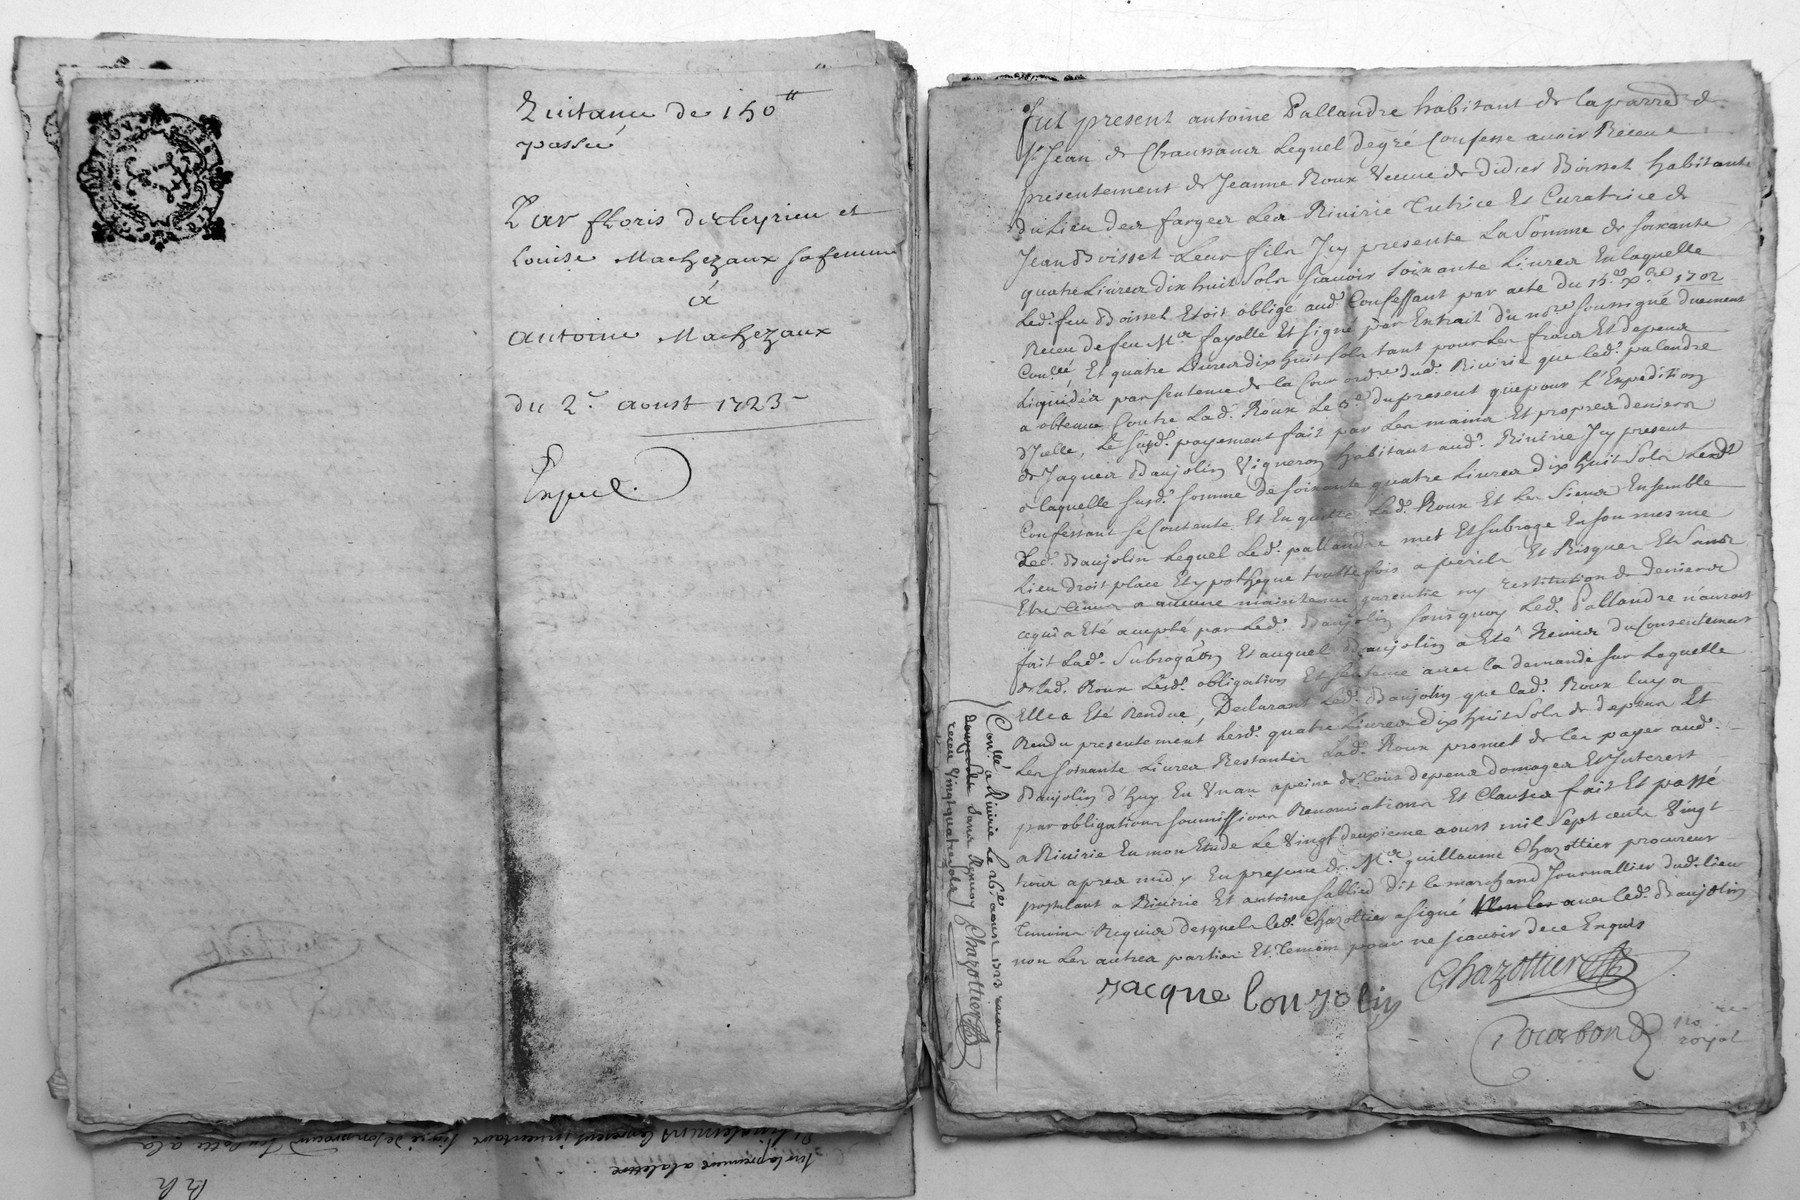 Quitance de 150ᵗᵗ
passée
Par floris Dicleyrieu et
Louise Machezaux sa femme
à
antoine Machezaux
du 2ᵉ aoust 1723
Expᵉ
fut present antoine Pallandre habitant de la parrᵉ de
Sᵗ Jean de Chaussana Lequel de gré Confesse auoir Receu
presentement de Jeanne Roux Veuue de Didier Boisset habitante
du Lieu des farges Lea Riuirie Tutrice Et Curatrice de
Jean Boisset Leur fils Jcy presente La Somme de soixante
quatre Liures dix huit Sols scauoir soixante Liures En laquelle
Led. feu Boisset Etoit obligé aud. Confessant par acte du 15ᵉ xbre 1702
Receu de feu Mᵉ fayolle Et signé par Extrait du noʳᵉ soussigné duement
Conllé Et quatre Liures dix huit sols tant pour Les fraix Et depens
Liquidés par sentence de la Cour ordʳᵉ dud. Riuirie que led. palandre
a obtenue Contre Lad. Roux Le du present que pour L'Expedition
d'Jcelle, Le susd. payement fait par Les mains Et propres deniers
de Jaques Baujolin Vigneron habitant aud. Riuirie Jcy present
de laquelle susd. somme de soixante quatre Liures dix huit Sols Led.
Confessant se Contente Et En quitte Lad. Roux Et Les Siens Ensemble
Led. Baujolin Lequel Led. pallandre met Et subroge En son mesme
Lieu droit place Et ypotheque touttefois a perils Et Risques Et sans
Etre tenu a aucune maintenue garentie ny restitution de deniers
ce qui a Eté accepté par Led. Baujolin sans quoy Led. Pallandre n'auroit
fait Lad. Subrogaōn Et auquel Baujolin a Eté Remis du Consentement
de Lad. Roux Lesd. obligation Et sentence auec la demande sur Laquelle
Elle a Eté Rendue, Declarant Led. Baujolin que lad. Roux luy a
Rendu presentement Lesd. quatre Liures dix huit Sols de depens Et
Les soixante Liures Restantes Lad. Roux promet de les payer aud.
Baujolin d'huy En Vn an a peine de tous depens domages Et Jnterest
par obligations soumissions Renonciations Et Clauses fait Et passé
a Riuirie En mon Etude Le Vingt deuxieme aoust mil Sept cents Vingt
trois apres midy En presence de Mᵉ guillaume Chazottier procureur
postulant a Riuirie Et antoine sablied dit le marchand Journallier dud. lieu
temoins Requis desquels led. Chazottier a signé auec led. Baujolin
non Les autres parties Et temoin pour ne scauoir de ce Enquis
Jacque boujolin
Chazottier
Bourbon
noʳᵉ
royal
Conllé a Riuirie Le 26ᵉ aoust 1723 receu
douze sols Sans Renuoy Chazottier
receu Vingt quatre sols